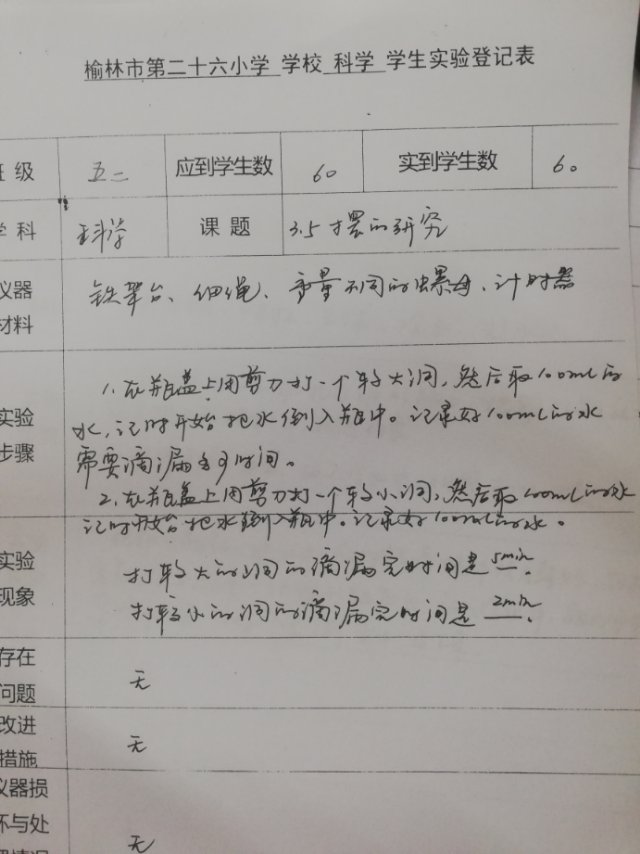 榆林市第二十六小学 学校 科学 学生实验登记表
班级 五二 应到学生数 60 实到学生数 60
学科 科学 课题 3.5 摆的研究
仪器材料 铁架台、细绳、质量不同的螺母、计时器
实验步骤
1. 在瓶盖上用剪刀打一个较大洞,然后取100mL的
水,记时开始把水倒入瓶中。记录好100mL的水
需要滴漏多少时间。
2. 在瓶盖上用剪刀打一个较小洞,然后取100mL的水
记时开始把水倒入瓶中。记录好100mL的水。
实验现象
打较大的洞的滴漏完时间是 5min.
打较小的洞的滴漏完时间是 2min.
存在问题 无
改进措施 无
仪器损坏与处 无